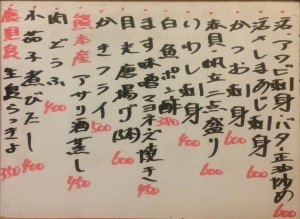 活アワビ刺身バター正油炒め 600
活〆しまあじ刺身 600
かつお刺身 600
いわし刺身 500
青貝・帆立二点盛り 600
白魚ポン酢 380
ます味噌マヨネーズ焼き 450
目光唐揚げ 600
かきフライ 500
熊本産アサリ酒蒸し 450
肉どうふ 400
小茄子煮びたし 400
鹿児島生島らっきょ 350